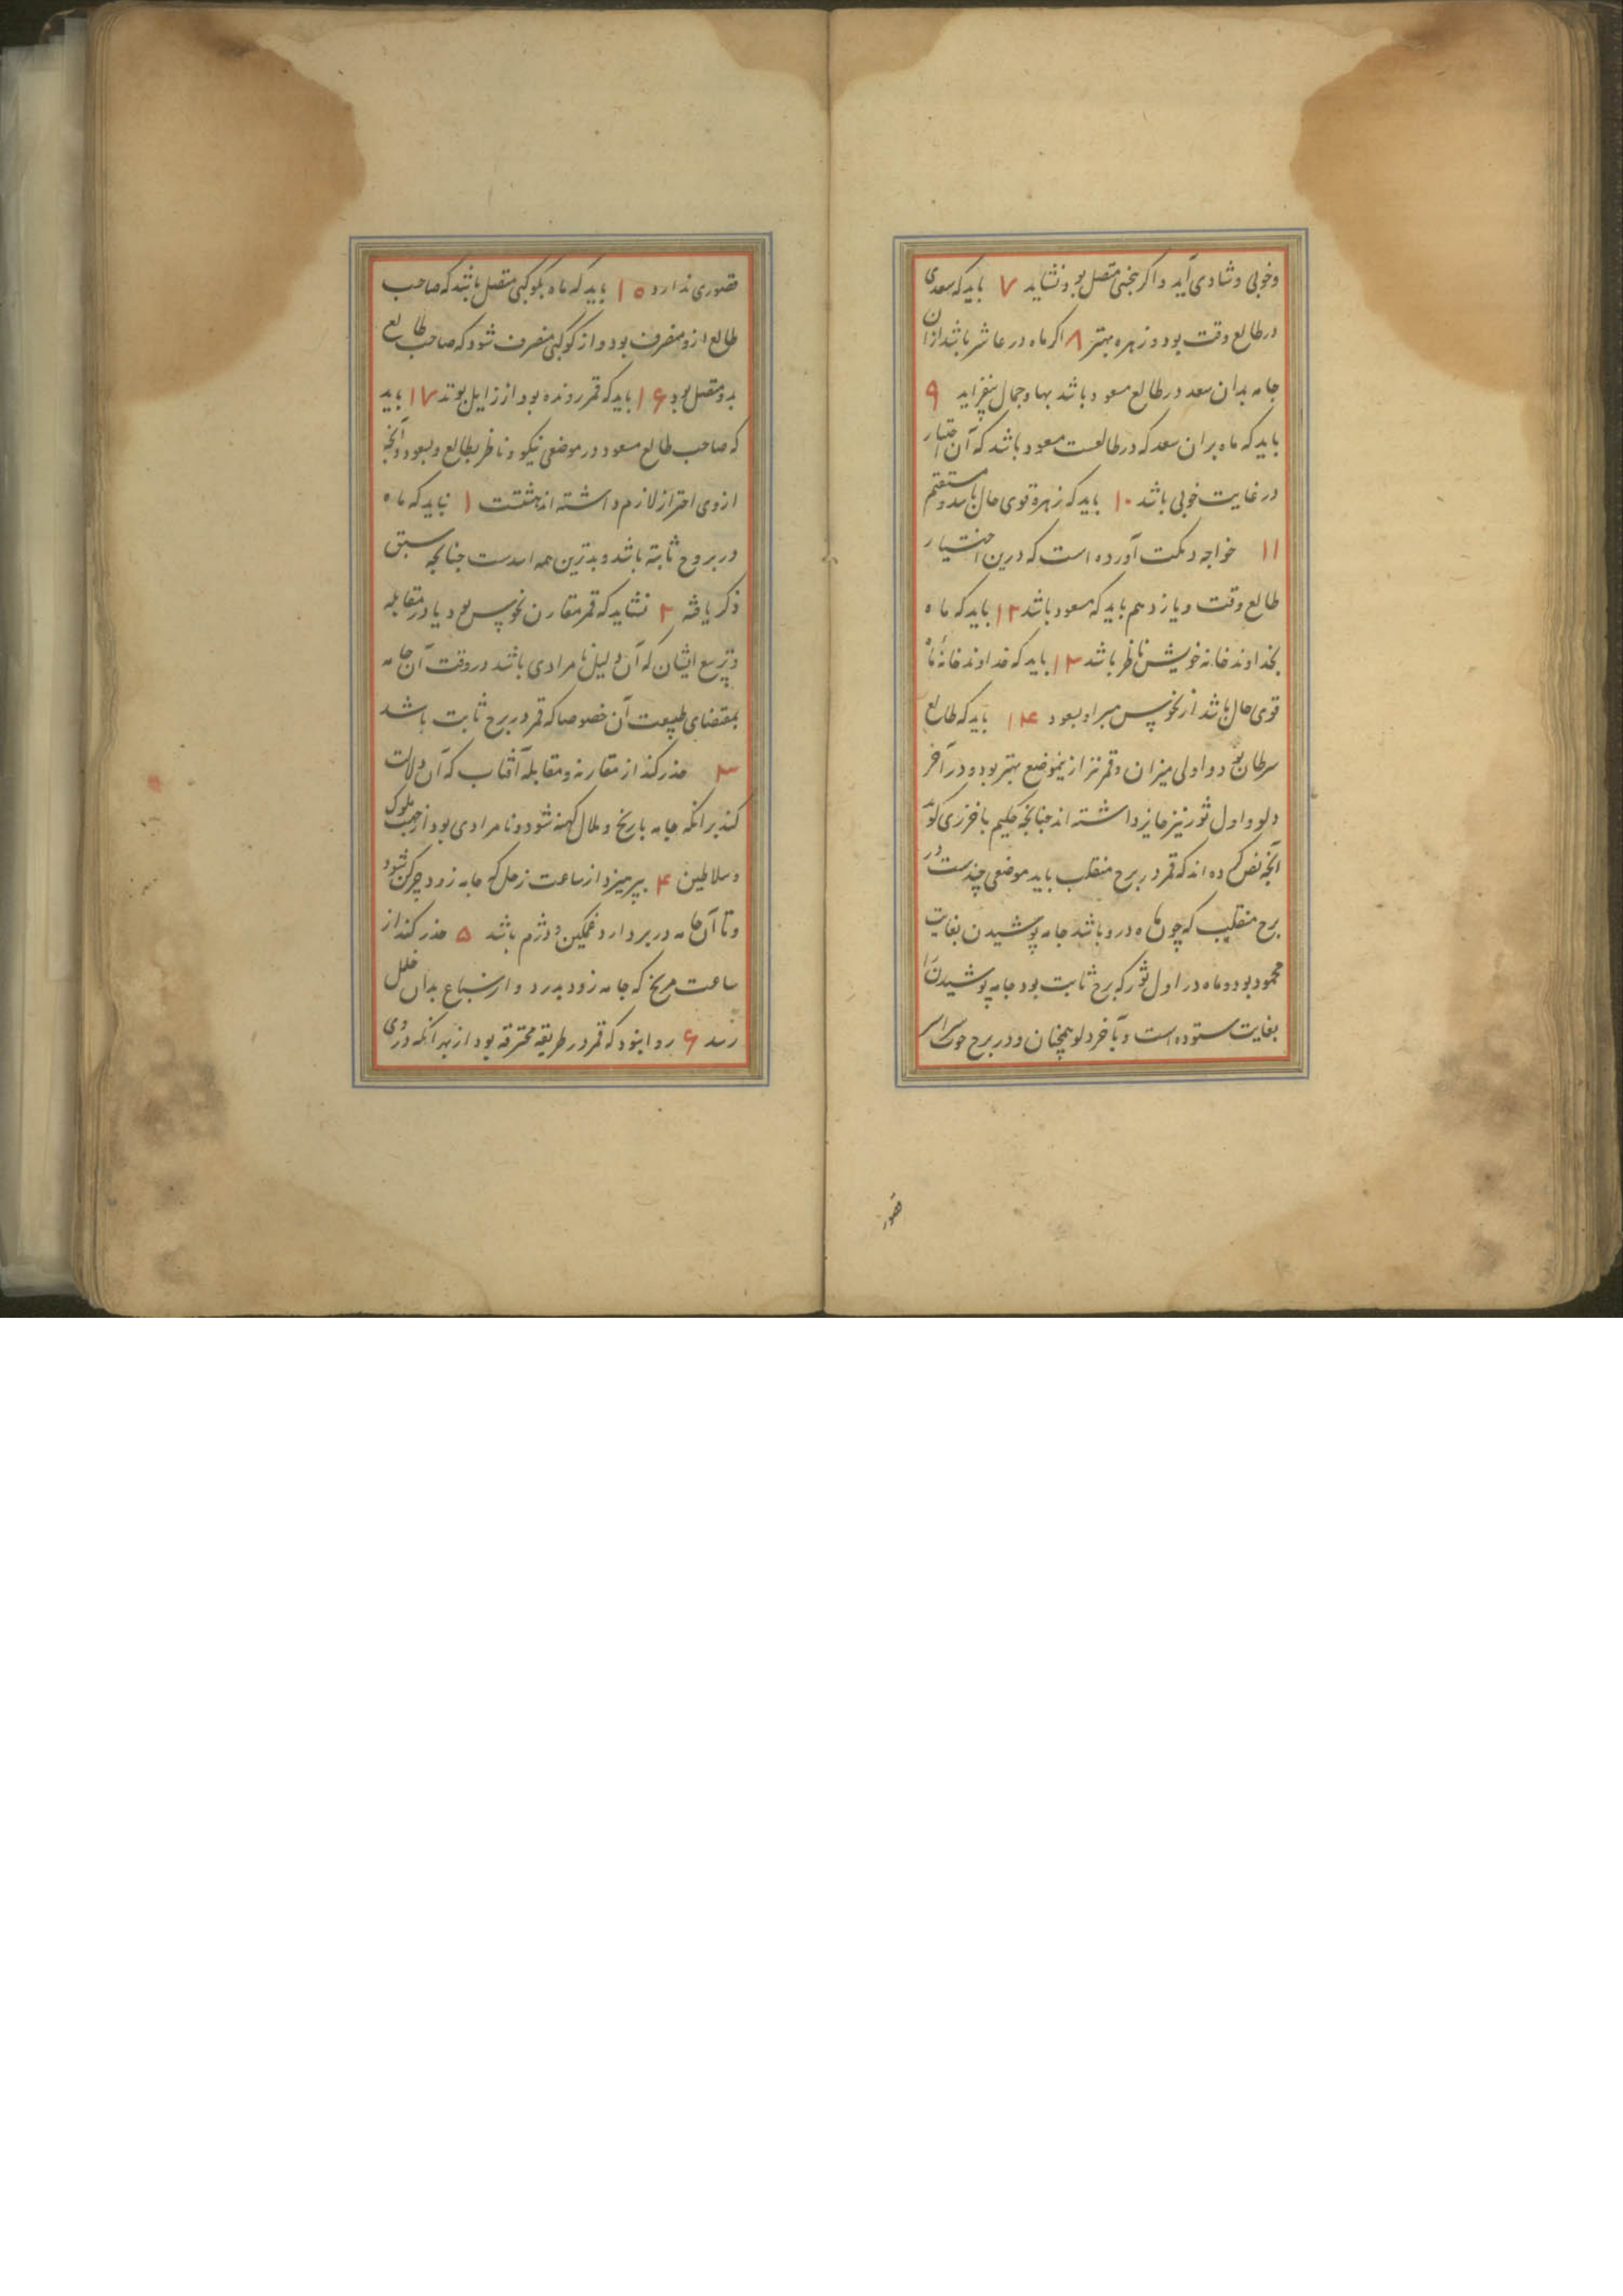 وخوبی و شادی آید و اگر بنحسی متصل بود نشاید ۷ باید که سعدی
در طالع وقت بود و زهره بهتر ۸ اگر ماه در عاشر باشد از آن
جامه بدان سعد در طالع مسعود باشد بها و جمال بیفزاید ۹
باید که ماه بران سعد که در طالعست مسعود باشد که آن اختیار
در غایت خوبی باشد ۱۰ باید که زهرة قوی حال باشد و مستقیم
۱۱ خواجه دیگت آورده است که درین اختیار
طالع وقت و یازدهم باید که مسعود باشد ۱۲ باید که ماه
بخداوند خانه خویش ناظر باشد ۱۳ باید که خداوند خانهٔ ماه
قوی حال باشد از نحوس مبرا و بسعود ۱۴ باید که طالع
سرطان بود و اولی میزان و قمر نیز ازینموضع بهتر بود و در آخر
دلو و اول ثور نیز جایز داشته اند جنانچه حکیم باخرزی گوید
آنچه نص کرده اند که قمر در برج منقلب باید موضعی چندست در
برج منقلب که چون ماه درو باشد جامه پوشیدن بغایت
محمود بود و ماه در اول ثور که برج ثابت بود جامه پوشیدن را
بغایت ستوده است و بآخر دلو همچنان و در برج حوت سراسر
قصور
قصوری ندارد ۱۵ باید که ماه بکوکبی متصل باشد که صاحب
طالع ازو منصرف بود و از کوکبی منصرف شود که صاحب طالع
بدو متصل بود ۱۶ باید که قمر رونده بود از زایل بوتد ۱۷ باید
که صاحب طالع مسعود در موضعی نیکو و ناظر بطالع و بسعود و آنچه
ازوی احتراز لازم داشته اند هشتست ۱ نباید که ماه
در بروج ثابته باشد و بدترین همه اسدست جنانچه سبق
ذکر یافته ۲ نشاید که قمر مقارن نحوس بود یا در مقابله
و تربیع ایشان که آن دلیل نامرادی باشد در وقت آن جامه
بمقتضای طبیعت آن خصوصا که قمر در برج ثابت باشد
۳ حذر کند از مقارنه و مقابله آفتاب که آن دلالت
کند برانکه جامه با رنج و ملال کهنه شود و نامرادی بود از جهت ملوک
و سلاطین ۴ بپرهیزد از ساعت زحل که جامه زود چرکن شود
و تا آن جامه در بر دارد غمگین و دژم باشد ۵ حذر کند از
ساعت مریخ که جامه زود بدرد و از سباع بدان خلل
رسد ۶ روا نبود که قمر در طریقه محترقه بود از بهر آنکه در وی